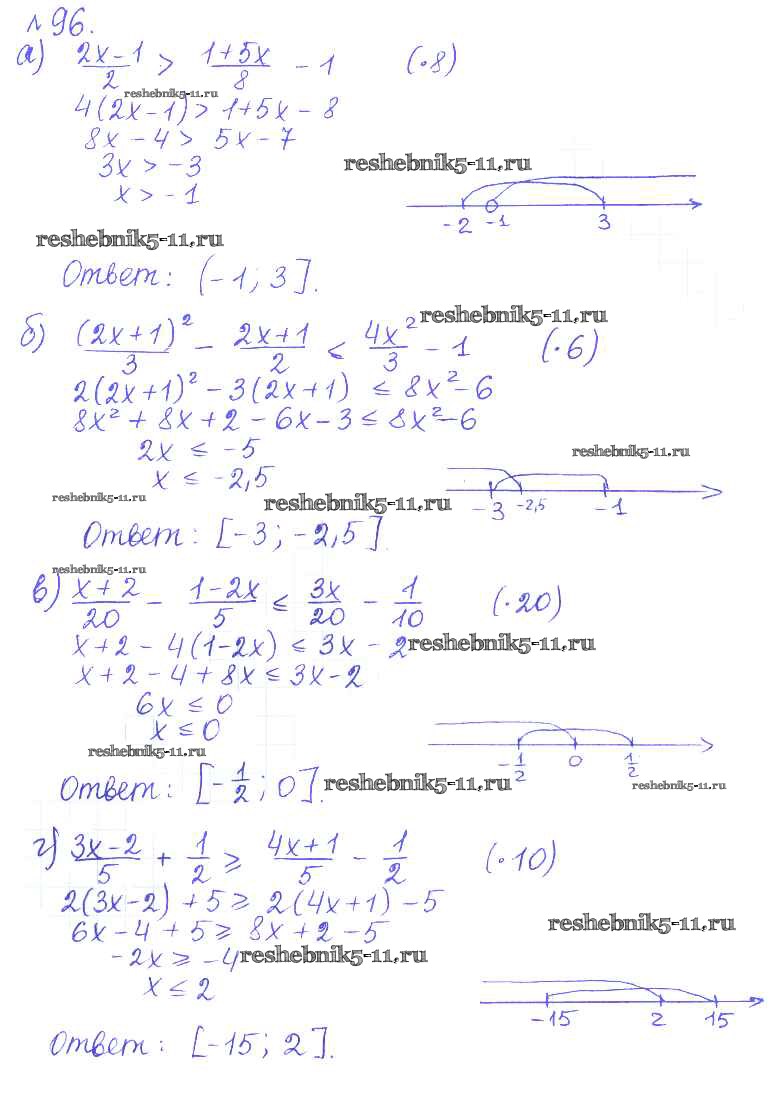 №96.
а) (2x-1)/2 > (1+5x)/8 - 1 (·8)
reshebnik5-11.ru
4(2x-1) > 1+5x-8
8x-4 > 5x-7
3x > -3
reshebnik5-11.ru
x > -1
-2 -1 3
reshebnik5-11.ru
Ответ: (-1; 3].
reshebnik5-11.ru
б) (2x+1)²/3 - (2x+1)/2 ≤ 4x²/3 - 1 (·6)
2(2x+1)² - 3(2x+1) ≤ 8x²-6
8x² + 8x + 2 - 6x - 3 ≤ 8x²-6
2x ≤ -5
reshebnik5-11.ru
x ≤ -2,5
reshebnik5-11.ru
reshebnik5-11.ru
-3 -2,5 -1
Ответ: [-3; -2,5]
reshebnik5-11.ru
в) (x+2)/20 - (1-2x)/5 ≤ 3x/20 - 1/10 (·20)
x+2 - 4(1-2x) ≤ 3x - 2
reshebnik5-11.ru
x+2-4+8x ≤ 3x-2
6x ≤ 0
x ≤ 0
reshebnik5-11.ru
-1/2 0 1/2
Ответ: [-1/2; 0].
reshebnik5-11.ru
reshebnik5-11.ru
г) (3x-2)/5 + 1/2 ≥ (4x+1)/5 - 1/2 (·10)
2(3x-2) + 5 ≥ 2(4x+1) - 5
6x - 4 + 5 ≥ 8x + 2 - 5
reshebnik5-11.ru
-2x ≥ -4
reshebnik5-11.ru
x ≤ 2
-15 2 15
Ответ: [-15; 2].